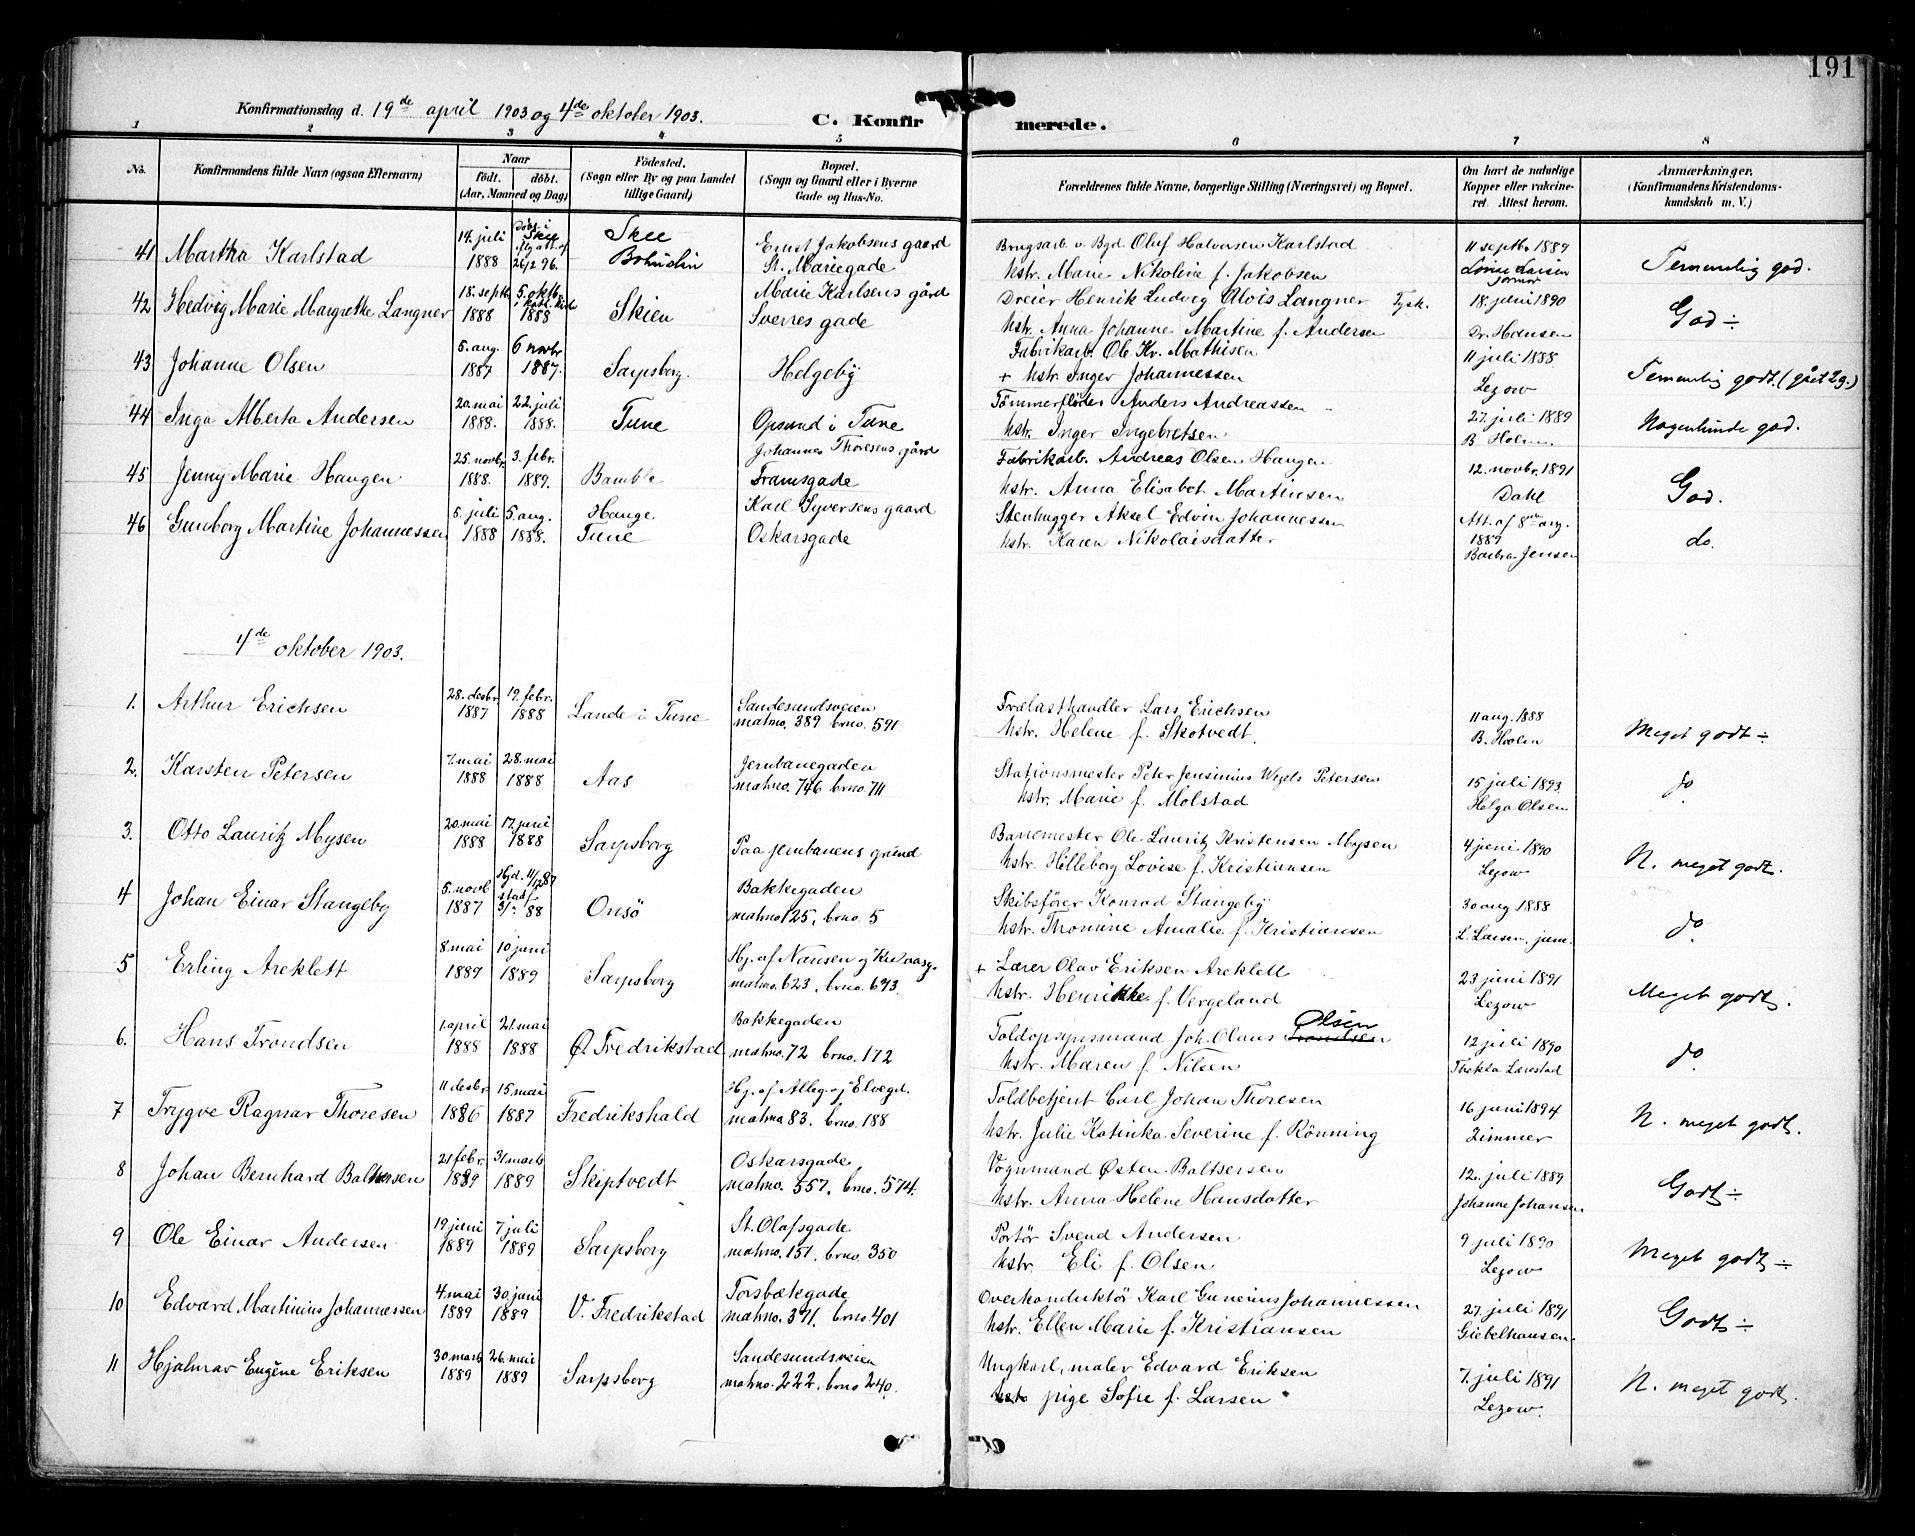 191
Konfirmationsdag d. 19de april 1903 og 4de oktober 1903.
C. Konfirmerede.
1 2 3 4 5 6 7 8
No.
Konfirmandens fulde Navn (ogsaa Efternavn)
Naar
født. døbt.
(Aar, Maaned og Dag)
Fødested.
(Sogn eller By og paa Landet
tillige Gaard)
Bopæl.
(Sogn og Gaard eller i Byerne
Gade og Hus-No.
Forældrenes fulde Navne, borgerlige Stilling (Næringsvei) og Bopæl.
Om havt de naturlige
Kopper eller vakcine-
ret. Attest herom.
Anmærkninger.
(Konfirmandens Kristendoms-
kundskab m. V.)
41 Martha Karlstad
14. juli
1888
Døbt i
Skee
26/2 96.
Skee
Ernst Jakobsens gaard
St. Mariegade
Brugsarb. v. Bgd. Oluf Halvorsen Karlstad
hstr. Marie Nikoline f. Jakobsen
11 septbr 1889
Lovise Larsen
Temmelig god.
42 Hedvig Marie Margrethe Langner
18. septb
1888
5. oktb.
1888
Skien
Marie Karlsens gård
Sverres gade
Dreier Henrik Ludvig Alois Langner Tysk.
hstr. Anna Johanne Martine f. Andersen
18. juni 1890
Dr. Hansen
God ÷
43 Johanne Olsen
5. aug.
1887
6 novbr
1887.
Sarpsborg.
Helgeby
Fabrikarb. Ole Kr. Mathisen
+ hstr. Inger Johannessen
11 juli 1888.
Lezow
Temmelig godt. (gået 2 g.)
44 Inga Alberta Andersen
20. mai
1888.
22. juli
1888.
Tune
Opsund i Tune
Tømmerfløder Anders Andreassen
hstr. Inger Ingebretsen
27. juli 1889
B Holm.
Nogenlunde god.
45 Jenny Marie Haugen
25. novbr.
1888.
3. febr.
1889.
Bamble
Johannes Thoresens gård
Framsgade
Fabrikarb. Andreas Olsen Haugen
hstr. Anna Elisabet Martinsen
12. novbr. 1891
Dahl
God.
46 Gunborg Martine Johannessen
5. juli
1888
5. aug.
1888.
Hauge.
Tune
Karl Syversens gaard
Oskarsgade
Stenhugger Aksel Edvin Johannessen
hstr. Karen Nikolaisdatter
Att. af 8de aug.
1889
Barbra Jensen
do.
4de oktober 1903.
1. Arthur Erichsen
28. desbr.
1887
19. febr.
1888
Lande i Tune
Sandesundsveien
matrno. 389 brno. 591
Trælasthandler Lars Erichsen
hstr. Helene f. Skotvedt.
11 aug. 1888
B. Holm
Meget godt ÷
2. Karsten Petersen
7. mai
1888
28. mai
1888
Aas
Jernbanegaden
matrno. 746 brno. 711
Stationsmester Peter Jensinius Wegels Petersen
hstr. Marie f. Molstad
15 juli 1893
Helga Olsen
do
3. Otto Lauritz Mysen
20. mai
1888
17. juni
1888
Sarpsborg
Paa jernbanens grund
Banemester Ole Lauritz Kristensen Mysen
hstr. Hilleborg Lovise f. Kristiansen
4 juni 1890
Lezow
N. meget godt.
4 Johan Einar Stangeby
5. novb
1887
Hjd. 11/12 87
stadf
3/- 88
Onsö
Bakkegaden
matrno 125, brno. 5
Skibsfører Konrad Stangeby
hstr. Thomine Amalie f. Kristiansen
30 aug 1888
L. Larsen, jum.
do
5 Erling Areklett
8. mai
1889
10 juni
1889
Sarpsborg
Hj. af Nansen og Kv
matrno. 623, brno. 693.
+ Lærer Olav Eriksen Areklett
hstr. Henrikke f. Vergeland
23 juni 1891
Lezow
Meget godt.
6. Hans Trondsen
1. april
1888
21. mai
1888
Ø. Fredrikstad
Bakkegaden
matrno. 72 brno. 172
Toldopsynsmand Joh. Olaus Trondsen Olsen
hstr. Maren f. Nilsen
12 juli 1890
Thekla Larestad
do
7 Trygve Ragnar Thoresen
11 desbr.
1886
15. mai
1887
Fredrikshald
Hj. af Alleg. og Elvegd.
matrno 83. brno. 188
Toldbetjent Carl Johan Thoresen
hstr. Julie Katinka Severine f. Rönning
16 juni 1894
Zimmer
N. meget godt.
8 Johan Bernhard Baltsersen
21 febr.
1889
31. marts
1889
Skiptvedt
Oskarsgade
matrno. 557. brno. 574.
Vognmand Østen Baltsersen
hstr. Anna Helene Hansdatter
12. juli 1889
Johanne Johansen
Godt ÷
9 Ole Einar Andersen
19 juni
1889
7 juli
1889
Sarpsborg
St. Olafsgade
matrno. 151. brno. 350
Portör Svend Andersen
hstr. Eli f. Olsen
9 juli 1890
Lezow
Meget godt ÷
10 Edvard Martinius Johannessen
4. mai
1889
30. juni
1889
V. Fredrikstad
Torsbækgade
matrno. 371. brno. 401
Overkonduktör Karl Gunerius Johannessen
hstr. Ellen Marie f. Kristiansen
27. juli 1891
Giebelhausen.
Godt ÷
11 Hjalmar Eugène Eriksen
30 marts
1889
26. mai
1889
Sarpsborg
Sandesundsveien
matrno. 222. brno 240.
Ungkarl, maler Edvard Eriksen
pige Sofie f. Larsen
7. juli 1891
Lezow.
N. meget godt.